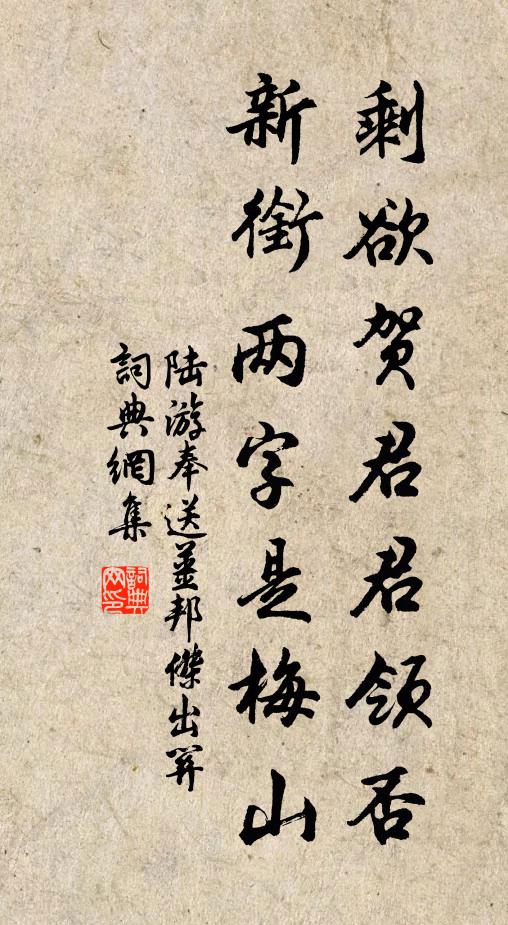 剩欲贺君君领否
新衔两字是梅山
陆游奉送姜邦傑出关
詞典網集
詞典
网印